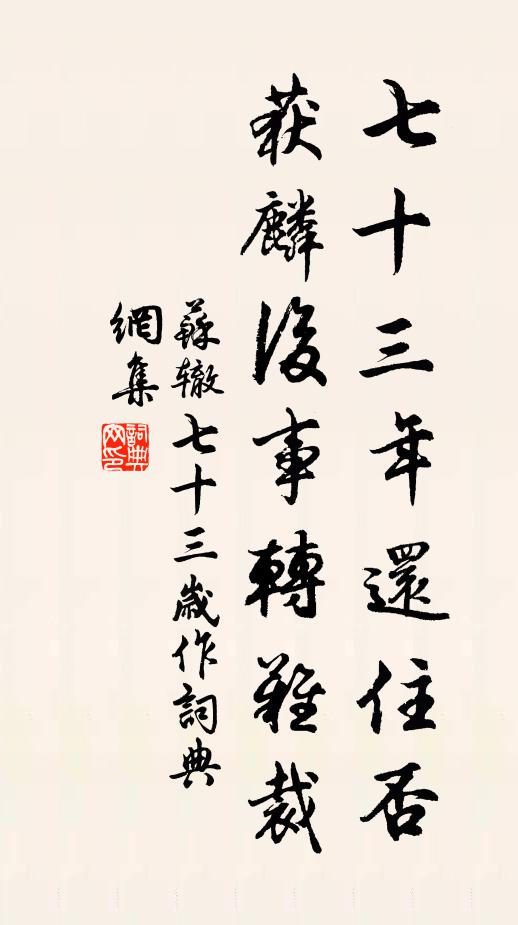 七十三年還住否
获麟後事轉難裁
蘇辙七十三歲作詞典
網集
詞典
网印